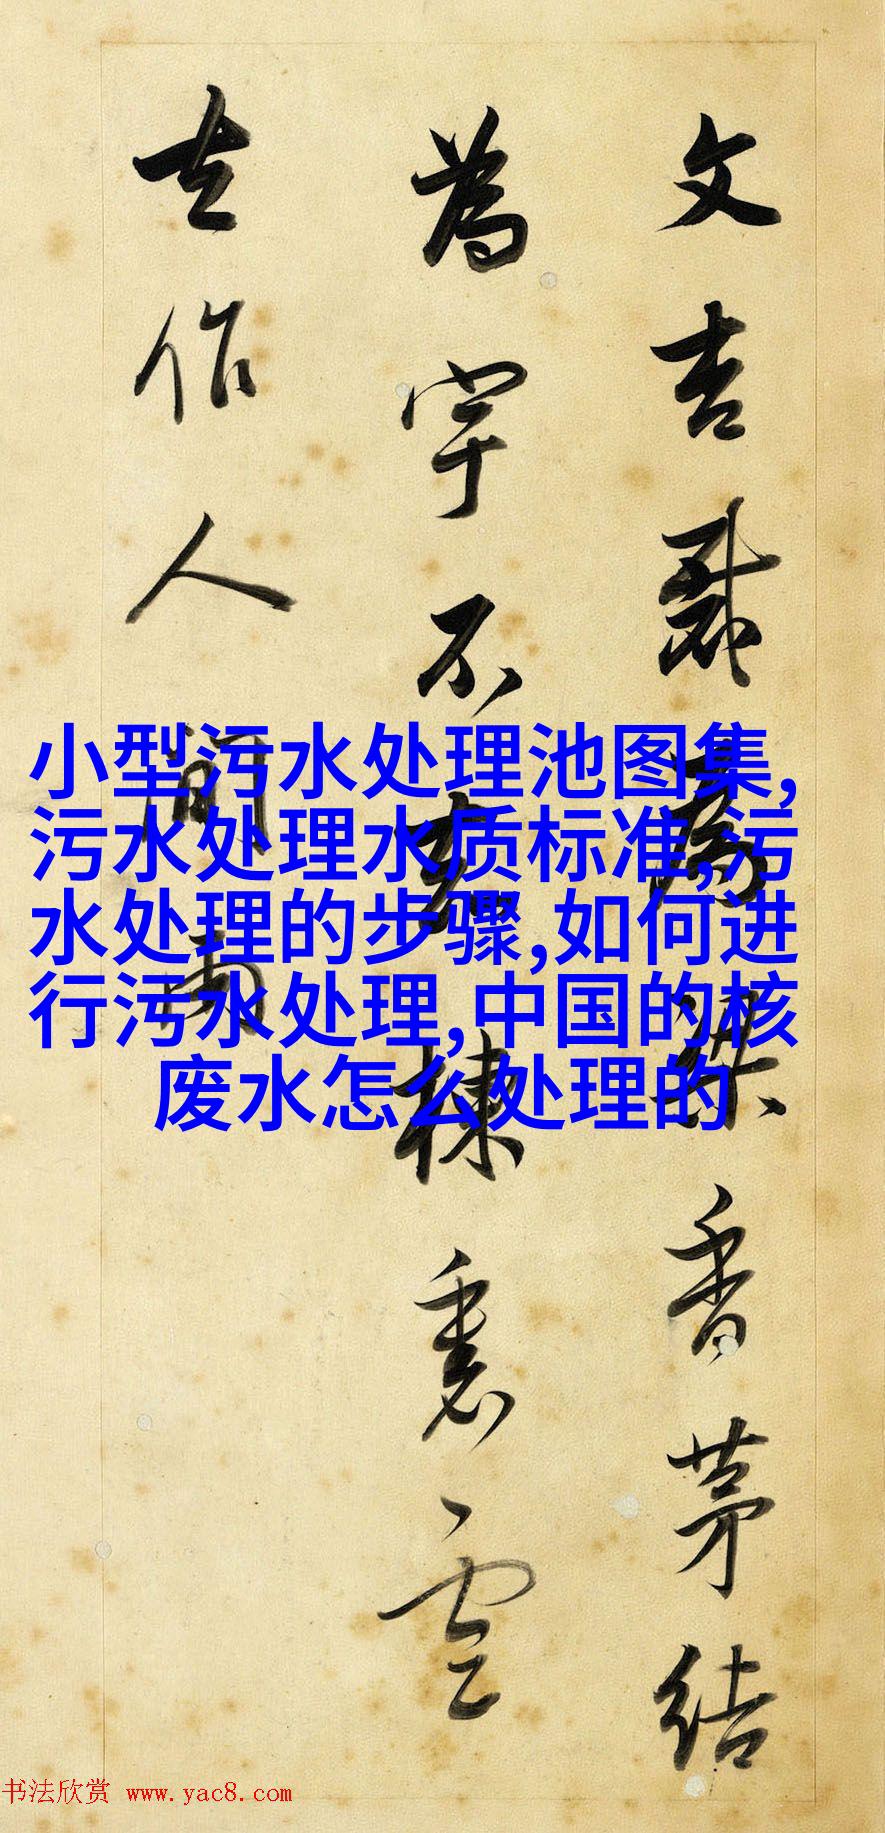 文吉裁為梁香茅結
為宇不知棟裏雲
去作人間雨
小型污水处理池图集,
污水处理水质标准,污
水处理的步骤,如何进
行污水处理,中国的核
废水怎么处理的
书法欣赏 www.yac8.com